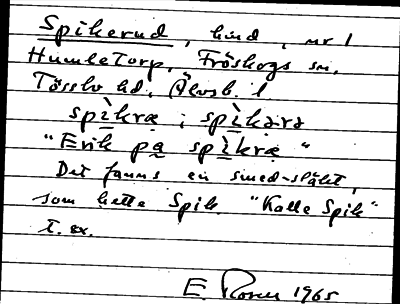 Spikerud, hmd, nr 1
Humletorp, Fröskogs sn,
Tössbo hd, Älvsb. l
spìkræ ; spìkərə
"Erik pa spìkræ"
Det fanns en smed-släkt,
som hette Spik "Kalle Spik"
t. ex.
E. 1965